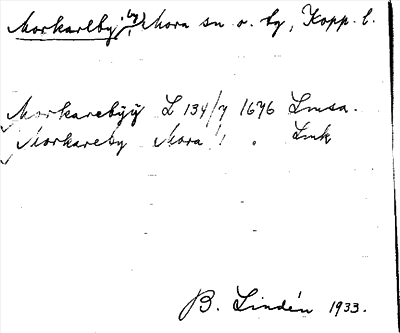 Morkarlby, by, Mora sn o. tg, Kopp. l.
Morkarebÿÿ L 134/7 1696 Lmsa.
Morkareby Mora " . Lmk
B. Lindén 1933.